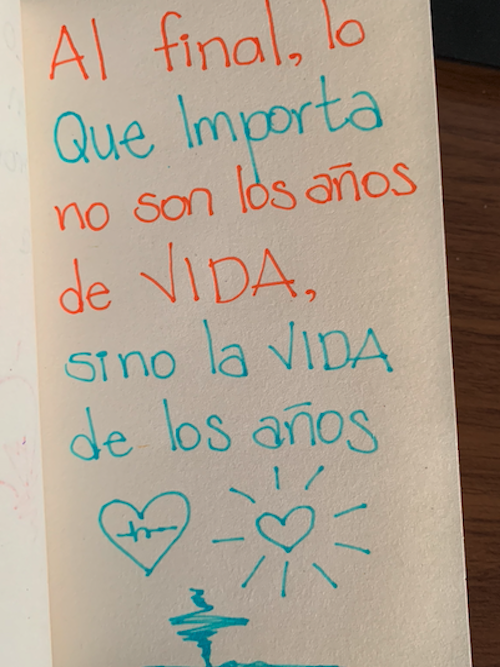 Al final, lo
Que Importa
no son los años
de VIDA,
sino la VIDA
de los años